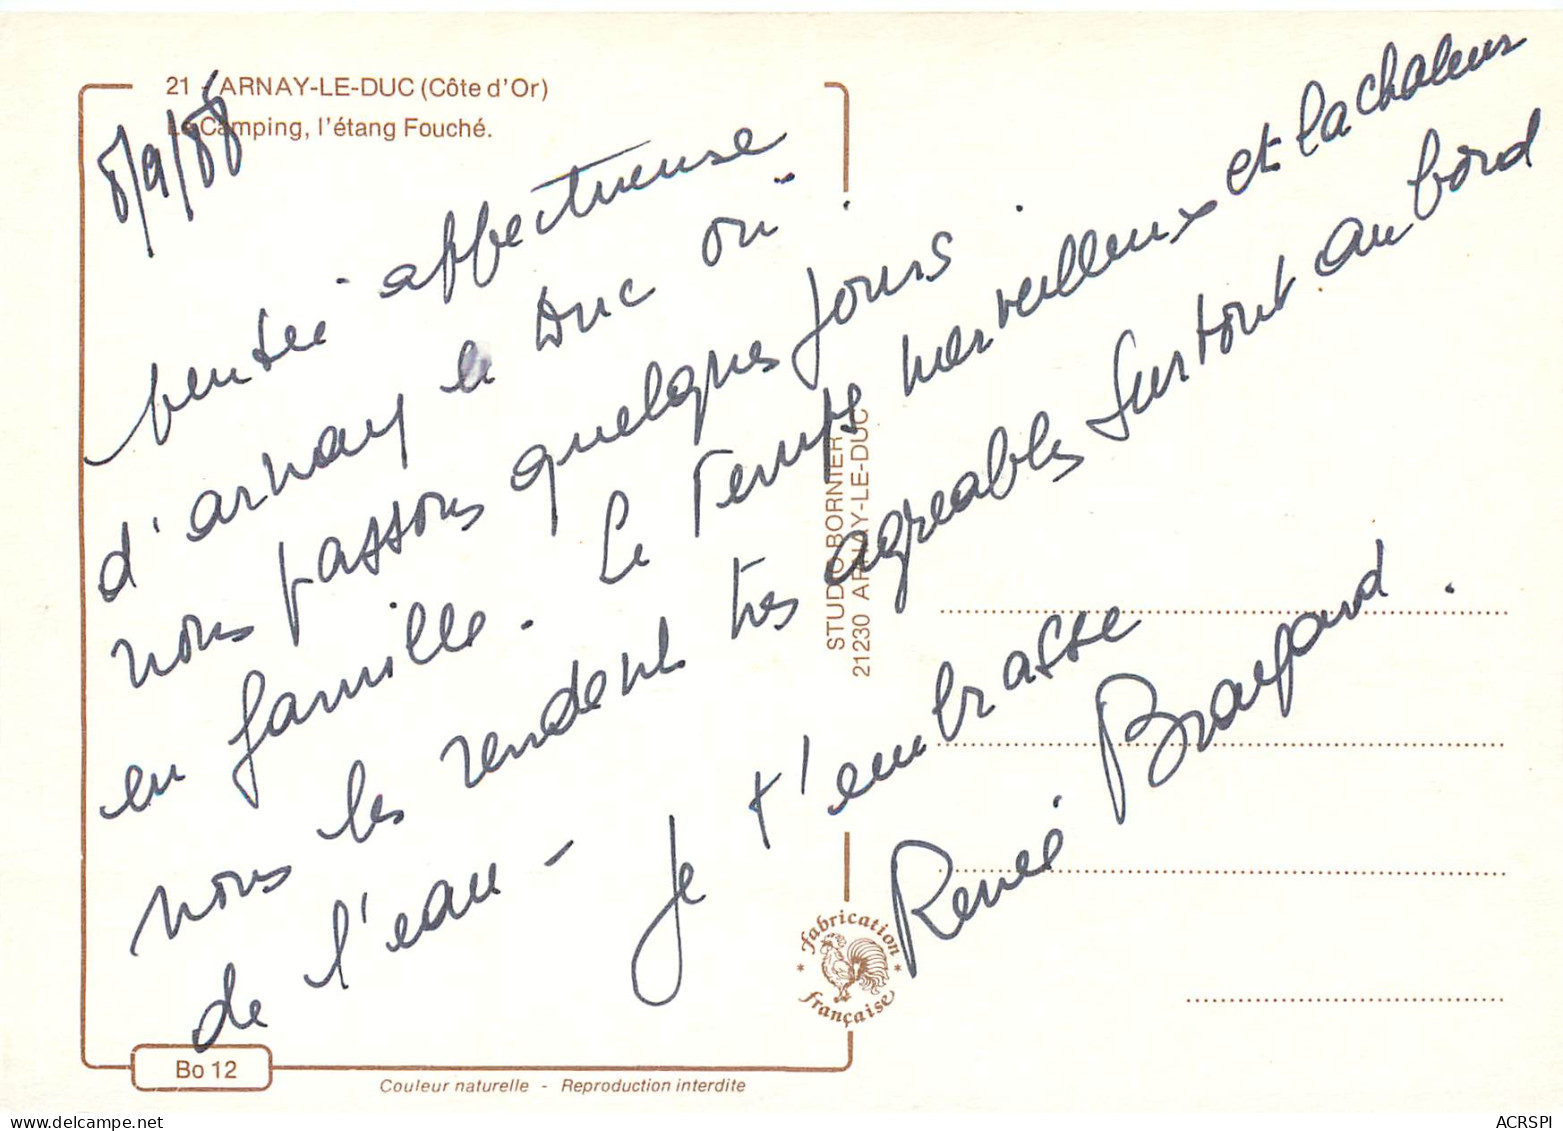 21 - ARNAY-LE-DUC (Côte d'Or)
Le Camping, l'étang Fouché.
8/9/88
pensée affectueuse
d'arnay le Duc où
nous passons quelques jours
en famille. Le Temps merveilleux et la chaleur
nous les rendent très agréables surtout au bord
de l'eau - Je t'embrasse
Renée
STUDIO BORNIER
21230 ARNAY-LE-DUC
fabrication
française
Bo 12
Couleur naturelle - Reproduction interdite
ACRSPI